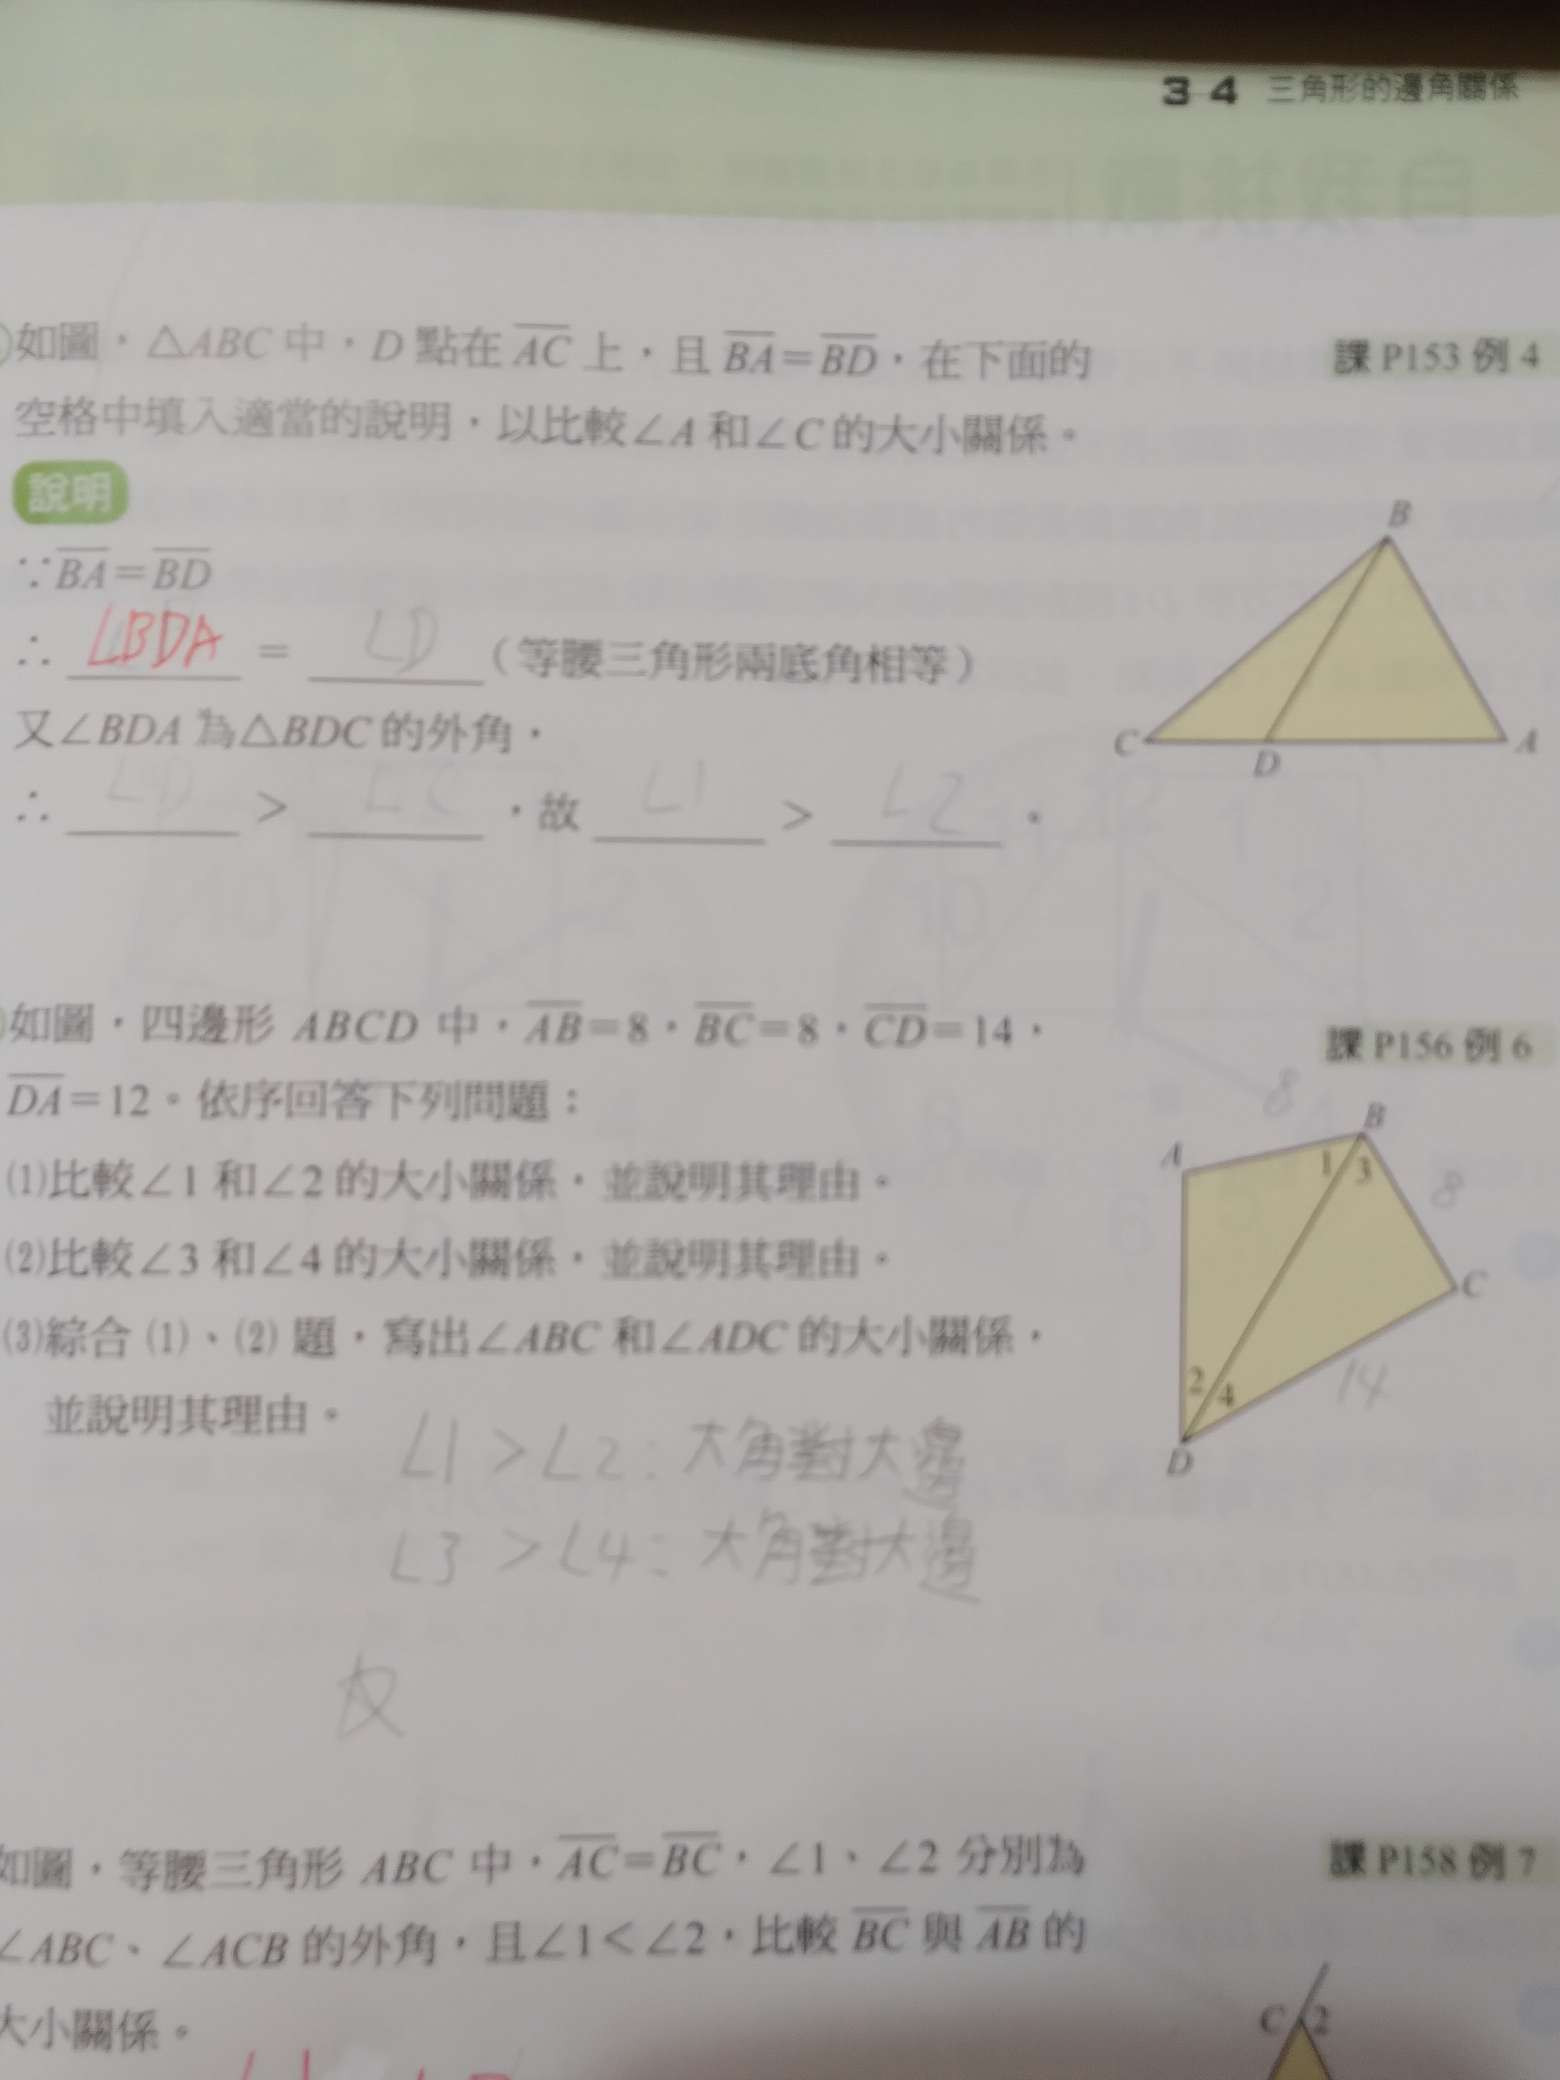 3-4 三角形的邊角關係
如圖，△ABC 中，D 點在 AC 上，且 BA＝BD，在下面的
課 P153 例 4
空格中填入適當的說明，以比較∠A 和∠C 的大小關係。
說明
∵BA＝BD
∴ ∠BDA ＝ ∠D （等腰三角形兩底角相等）
又∠BDA 為△BDC 的外角，
∴ ∠D ＞ ∠C ，故 ∠1 ＞ ∠2 。
B
C
D
A
如圖，四邊形 ABCD 中，AB＝8，BC＝8，CD＝14，
課 P156 例 6
DA＝12。依序回答下列問題：
(1)比較∠1 和∠2 的大小關係，並說明其理由。
(2)比較∠3 和∠4 的大小關係，並說明其理由。
(3)綜合 (1)、(2) 題，寫出∠ABC 和∠ADC 的大小關係，
並說明其理由。
8
B
A
1 3
8
C
2 4
14
D
∠1 > ∠2: 大角對大邊
∠3 > ∠4: 大角對大邊
如圖，等腰三角形 ABC 中，AC＝BC，∠1、∠2 分別為
課 P158 例 7
∠ABC、∠ACB 的外角，且∠1＜∠2，比較 BC 與 AB 的
大小關係。
C 2